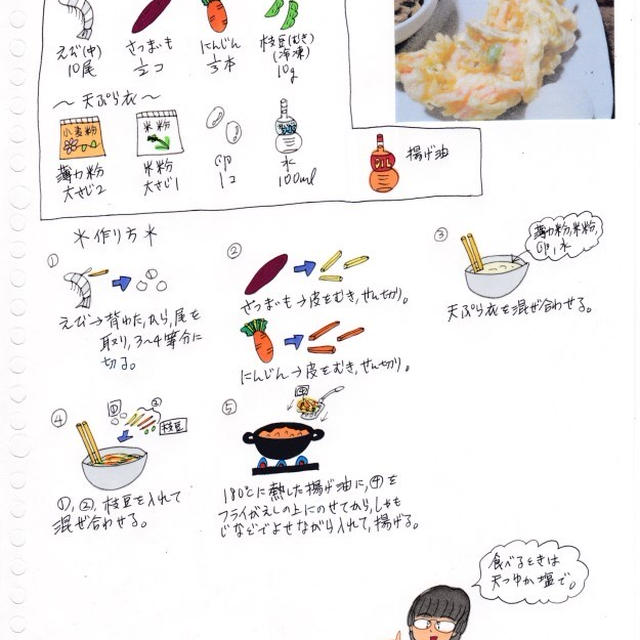 えび(中)
10尾
さつまいも
1/2コ
にんじん
1/3本
枝豆(むき)
(冷凍)
10g
～天ぷら衣～
小麦粉
薄力粉
大さじ2
米粉
米粉
大さじ1
卵
1コ
水
水
100ml
OIL
揚げ油
＊作り方＊
①
えび→背わた,から,尾を
取り,3～4等分に
切る。
②
さつまいも→皮をむき,せん切り。
にんじん→皮をむき,せん切り。
③
薄力粉,米粉,
卵,水
天ぷら衣を混ぜ合わせる。
④
①
②
枝豆
①,②,枝豆を入れて
混ぜ合わせる。
⑤
④
180℃に熱した揚げ油に,④を
フライがえしの上にのせてから,しゃも
じなどでよせながら入れて,揚げる。
食べるときは
天つゆか塩で。